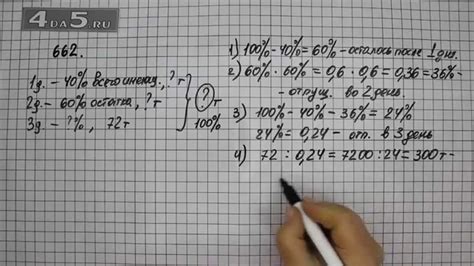 4DA5.RU
662.
1д. – 40% всего имеющ., ? т
2д. – 60% остатка, ? т
3д. – ?%, 72т
? т
100%
1) 100% - 40% = 60% - осталось после 1 дня.
2) 60% · 60% = 0,6 · 0,6 = 0,36 = 36% -
- отпущ. во 2 день.
3) 100% - 40% - 36% = 24%
24% = 0,24 - отп. в 3 день
4) 72 : 0,24 = 7200 : 24 = 300 т -